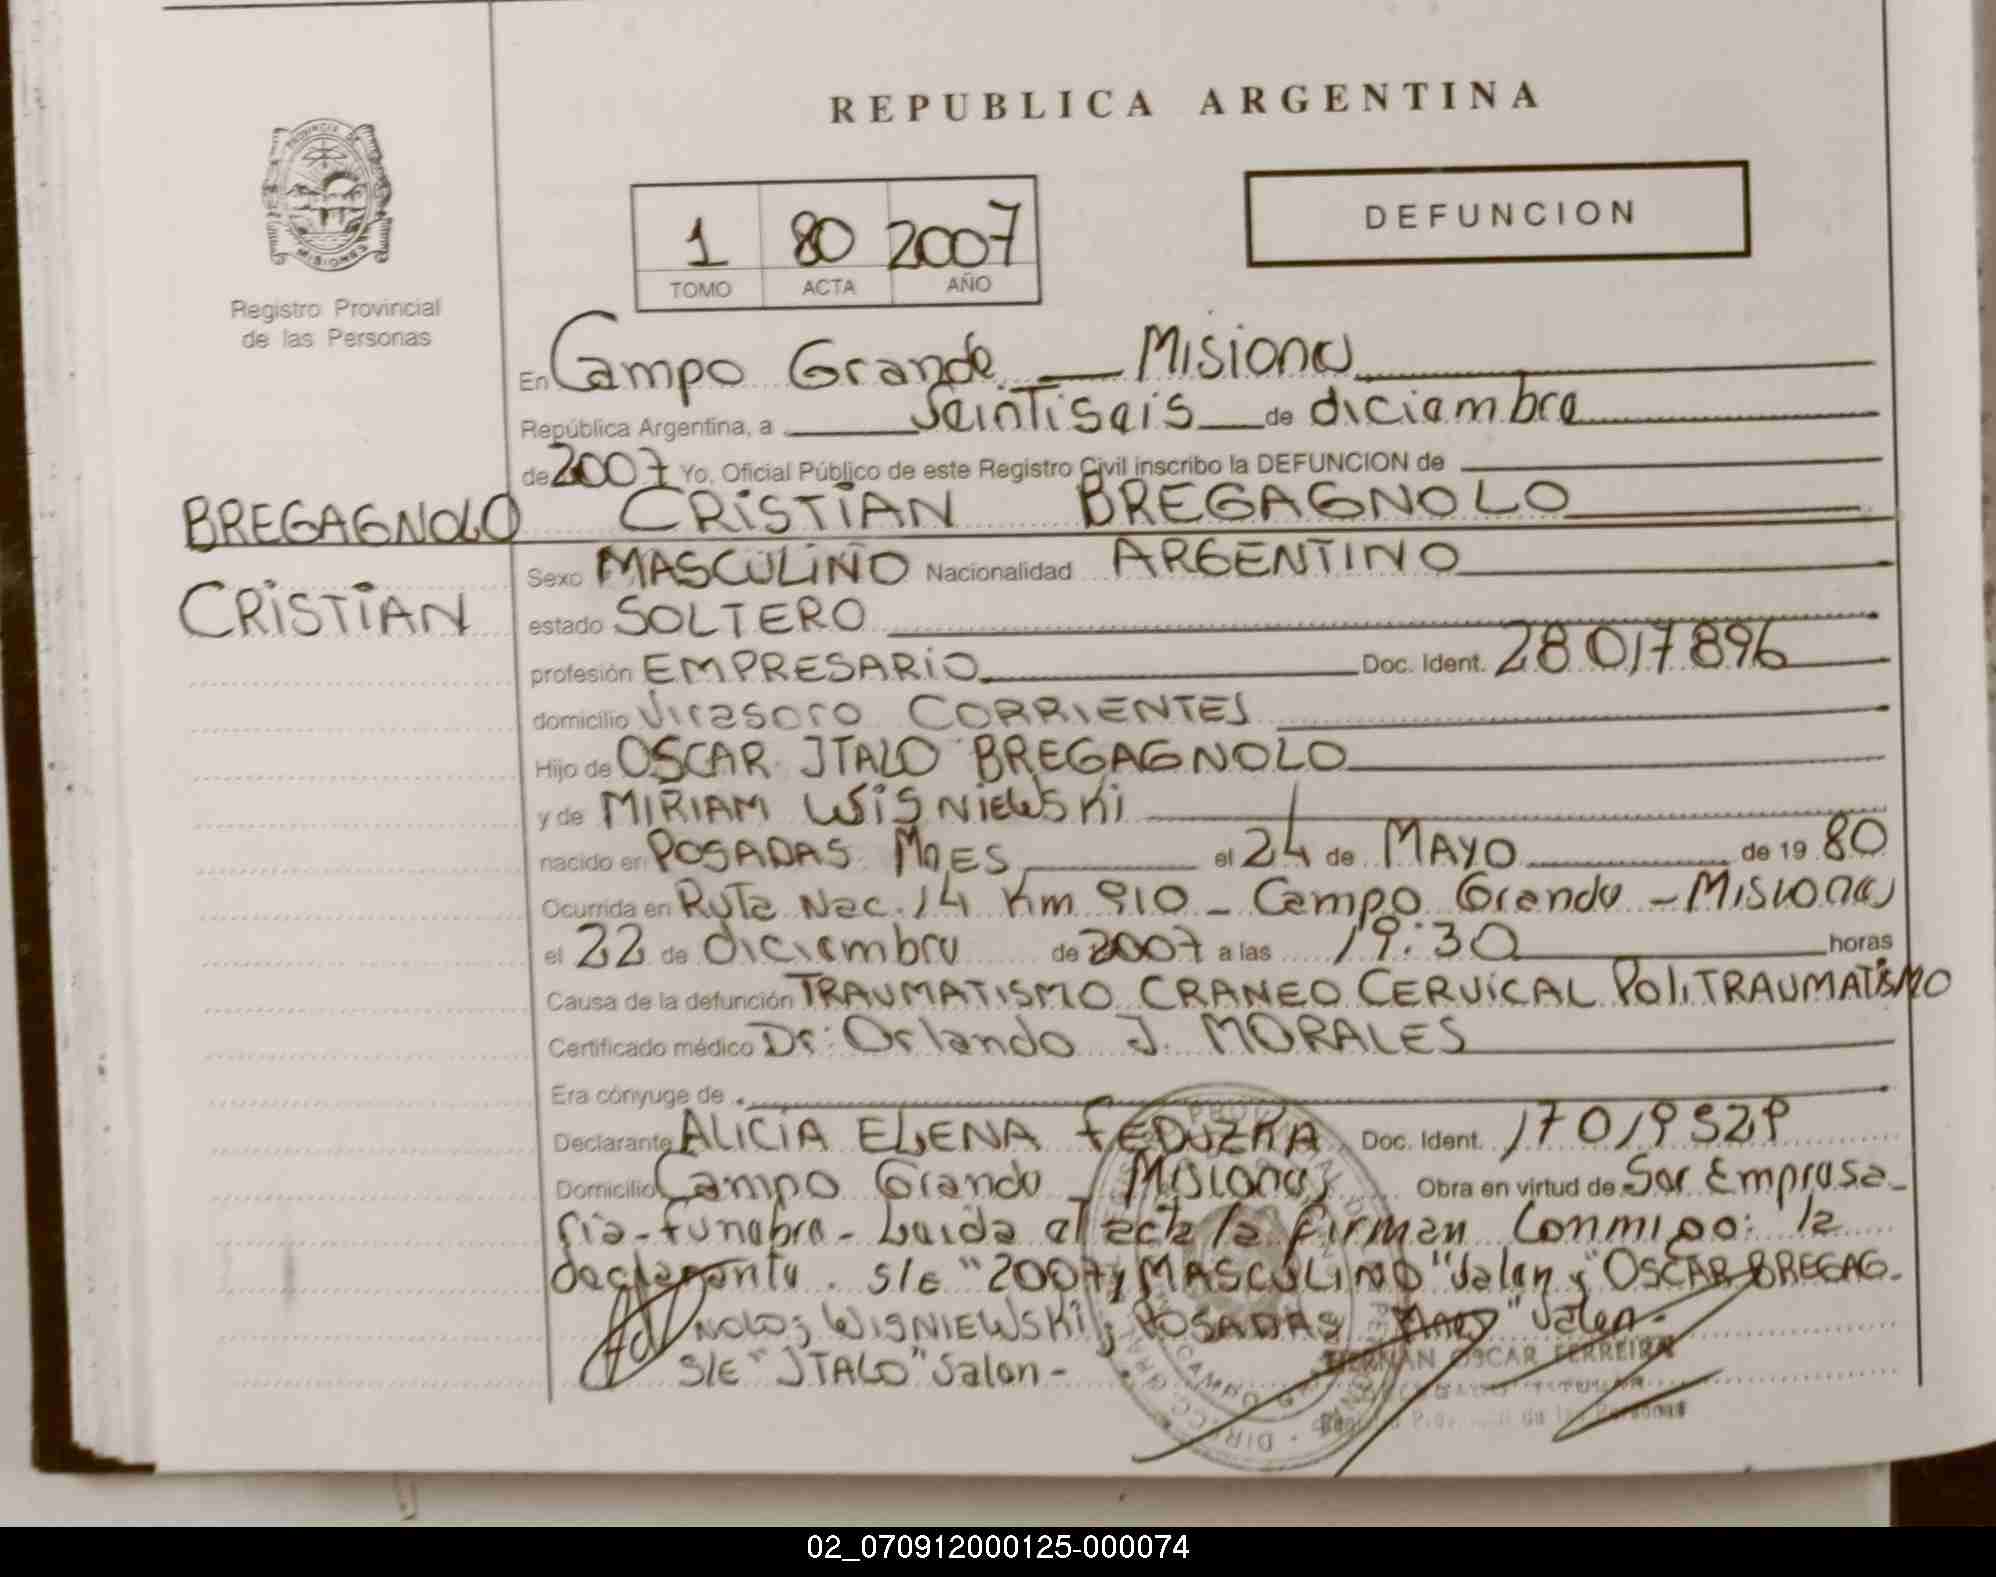 REPUBLICA ARGENTINA
PROVINCIA DE
MISIONES
Registro Provincial
de las Personas
1 80 2007
TOMO ACTA AÑO
DEFUNCION
En Campo Grande Misiones
República Argentina, a Veintiseis de diciembre
de 2007 Yo, Oficial Público de este Registro Civil inscribo la DEFUNCION de
BREGAGNOLO CRISTIAN BREGAGNOLO
CRISTIAN
Sexo MASCULINO Nacionalidad ARGENTINO
estado SOLTERO
profesión EMPRESARIO Doc. Ident. 28017896
domicilio Virasoro CORRIENTES
Hijo de OSCAR ITALO BREGAGNOLO
y de MIRIAM WISNIEWSKI
nacido en POSADAS Mnes el 24 de MAYO de 19 80
Ocurrida en Ruta Nac. 14 Km 910 - Campo Grande - Misiones
el 22 de diciembre de 2007 a las 19:30 horas
Causa de la defunción TRAUMATISMO CRANEO CERVICAL POLITRAUMATISMO
Certificado médico Dr: Orlando J. MORALES
Era cónyuge de
Declarante ALICIA ELENA FEDUZKA Doc. Ident. 17019529
Domicilio Campo Grande - Misiones Obra en virtud de Ser Empresa
fía-funebre- Leida el acta la firman Conmigo: la
declarante. S/E "2007; MASCULINO" Valen; "OSCAR BREGAG-
NOLO; WISNIEWSKI; POSADAS Mnes" Valen-
S/E "ITALO" Valen-
HERNAN OSCAR FERREIRA
02_070912000125-000074